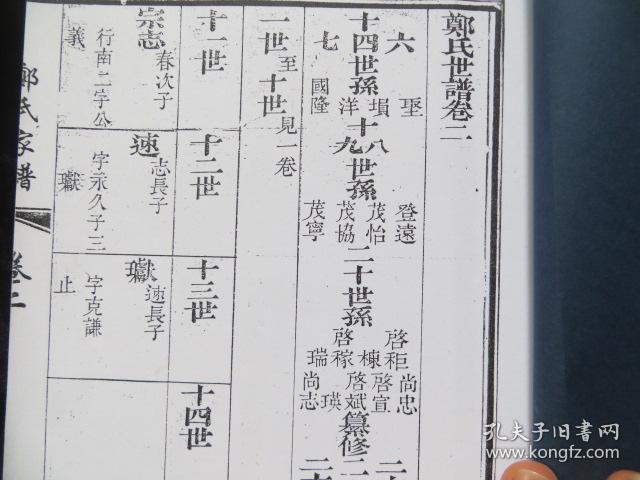 鄭氏世譜卷二
十四世孫
六 聖
塤
洋
七 國隆
十八世孫
十九
登遠
茂怡
茂協
茂寧
二十世孫
啓秬 尚忠
棟 啓宣
啓稼 啓斌
瑞 瑛
尚志
纂修
一世至十世見一卷
十一世
十二世
十三世
十四世
宗志 春次子
行南二字公
義
速 志長子
字永久子三
瓛
瓛 速長子
字克謙
止
鄭氏家譜
卷二
孔夫子旧书网
www.kongfz.com